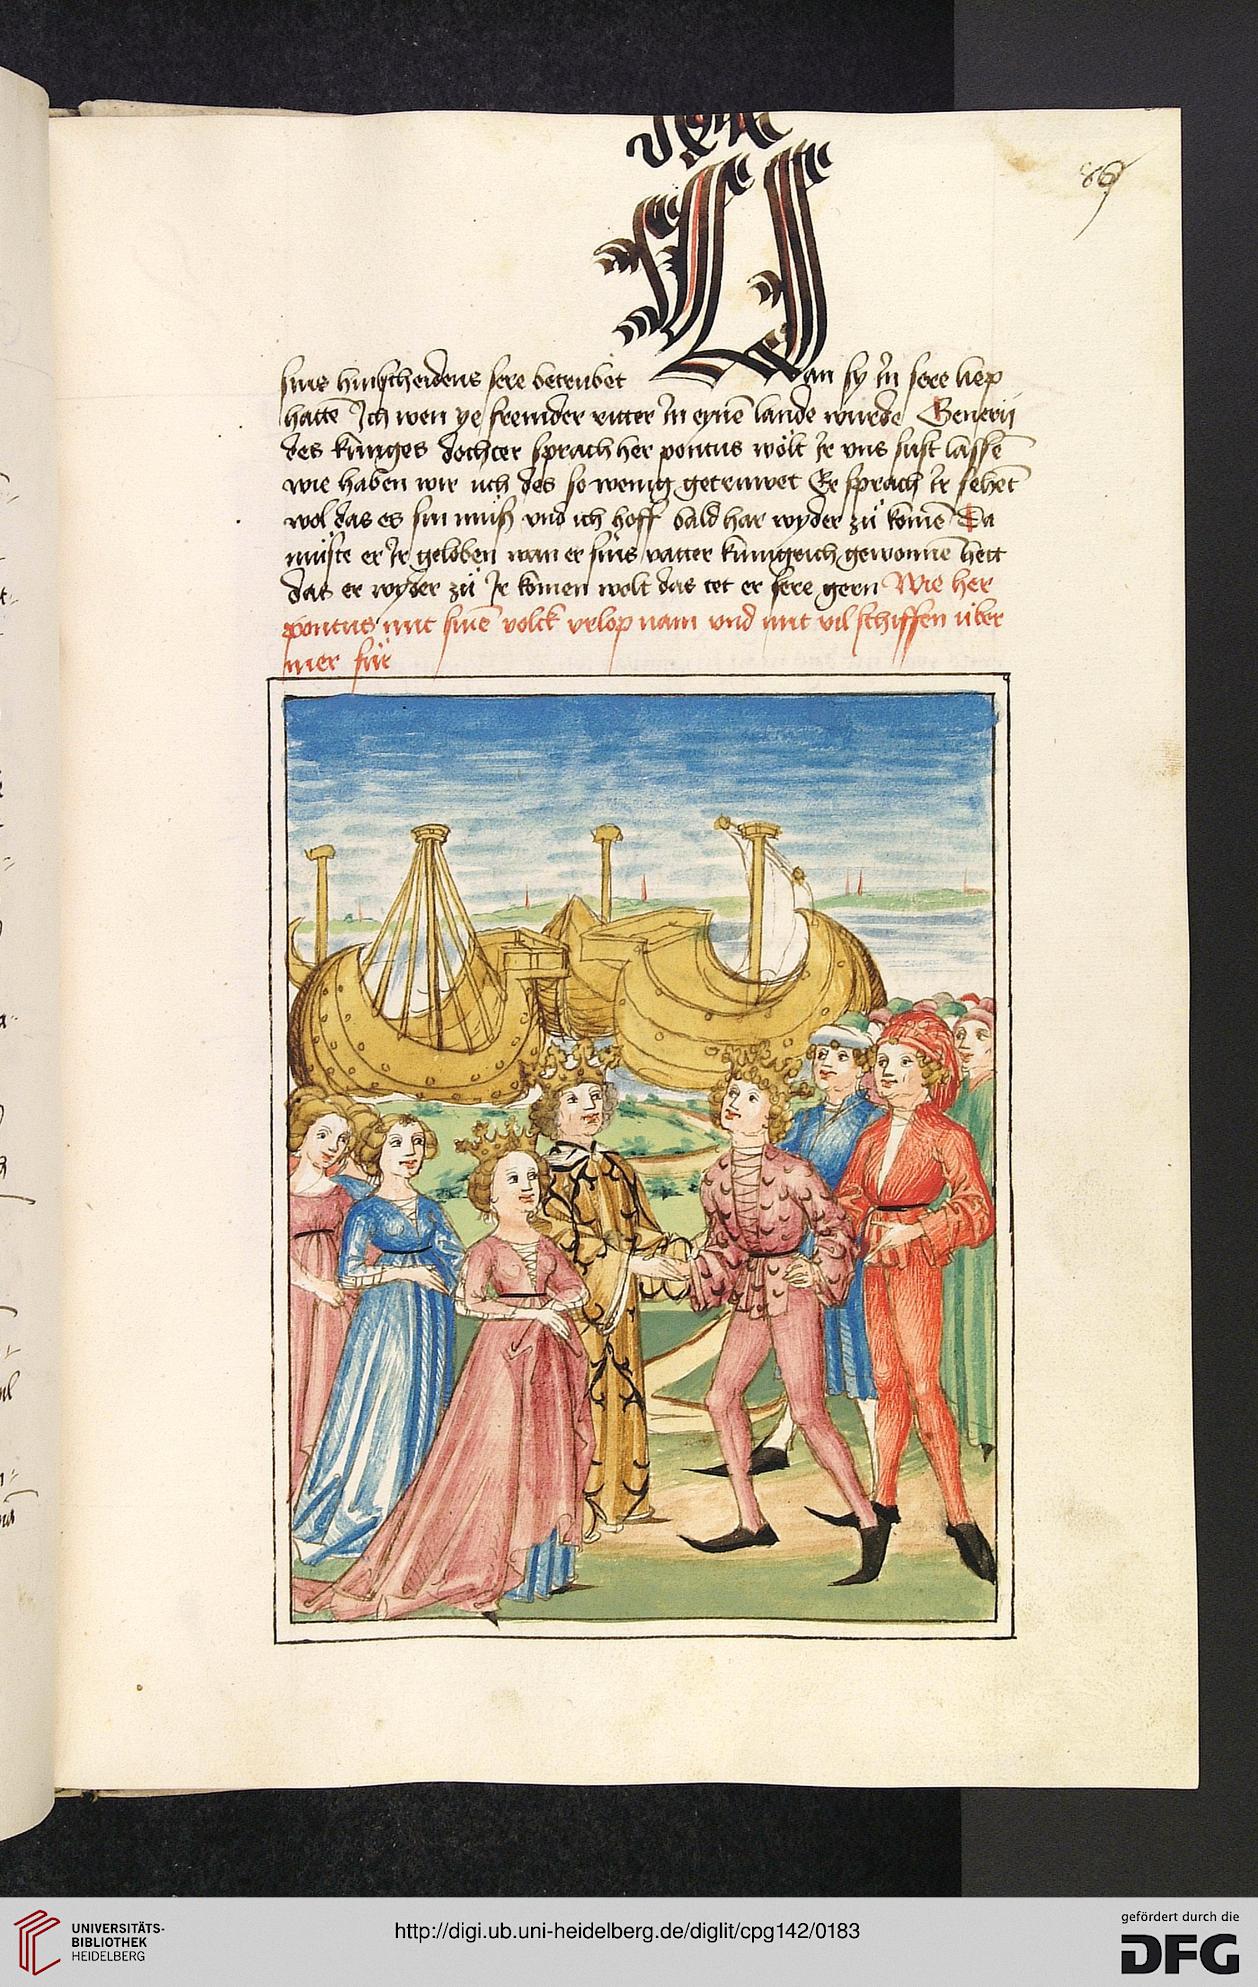 89
sins hinscheidens sere betrubet Wan sy in sere liep
hattē Ich wen ye fremder ritter in eynē lande wurde Geneviĵ
des kunges dochter sprach her pontus wolt ir uns sust lassē
wie haben wir uch des so wenig getruwet Er sprach ir sehēt
wol das es sin muß vnd ich hoff bald har wyder zů komē Da
muste er ir geloben wan er sins vatter kunigrich gewonnē hett
das er wyder zů ir komen wolt das tet er sere gern Wie her
pontus mit sinē volck vrlop nam vnd mit vil schiffen über
mer für
UNIVERSITÄTS-
BIBLIOTHEK
HEIDELBERG
http://digi.ub.uni-heidelberg.de/diglit/cpg142/0183
gefördert durch die
DFG